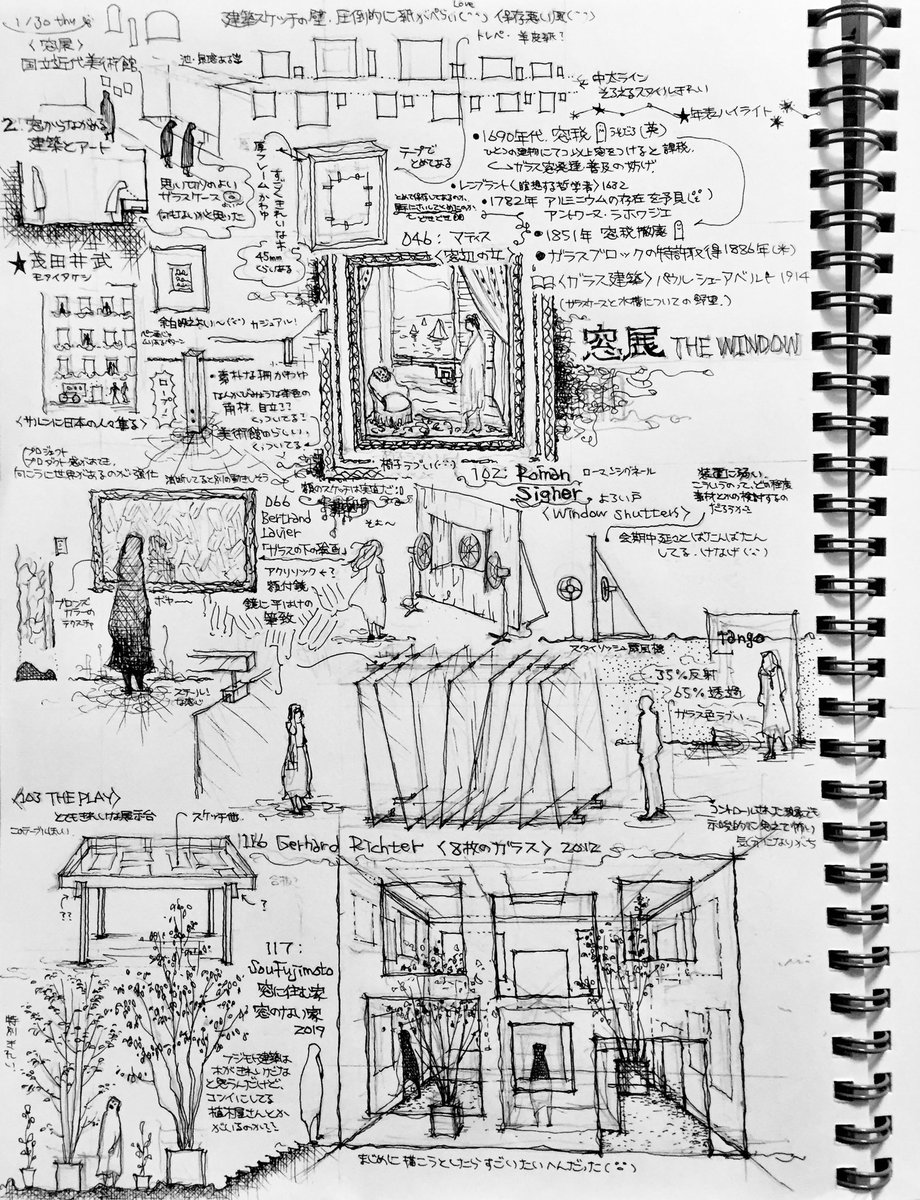 1/30 thu
<窓展>
国立近代美術館
建築スケッチの壁.圧倒的に紙がぺらい 保存悪い風
Love
トレペ・羊皮紙?
中太ライン
そろえるスタイルきれい
★年表ハイライト
2.窓からながめる
建築とアート
思いきりのよい
ガラスケース
何もないかと思った
厚フレームかわゆ
すごくきれいな木
45mm
くらいある
テープで
とめてある
・1690年代 窓税 (英)
ひとつの建物にて7つ以上窓をつけると課税.
ガラス窓発達・普及の妨げ.
・レンブラント<瞑想する哲学者>1632
・1782年 アルミニウムの存在を予見
アントワーヌ・ラボワジエ
・1851年 窓税撤廃
・ガラスブロックの特許取得 1886年(米)
<ガラス建築>パウル・シェーアバルト 1914
(ガラスケースと水槽についての野望.)
046:マティス
<窓辺の女>
★茂田井武
モタイタケシ
カジュアル!
<サルーンに日本の人々集る>
ロープ!
・素朴な柵かわゆ
角材.自立??
くっついてる?
美術館めずらしい.
くっついてる
窓展 THE WINDOW
椅子うすい
プロジェクト
プロジェクト窓があって.
向こうに世界があるのが強化
額のスケッチは実道だ:0
066
Bertrand
Lavier
「ガラスの下の絵画」
アクリリック←?
額付鏡
鏡に平はけの
筆致
そよ〜
ボヤ〜〜
ブロンズ
カラーの
テクスチャ
スチール!
な感じ
102:Roman
Sigher
ローマンシグネール
よろい戸
<Window shutters>
装置に弱い.
こういうのって、どの程度
素材とかの検討するの
だろうか?
会期中ずっとばたんばたん
してる.けなげ
スタイリッシュ扇風機
tango
35%反射
65%透過
ガラス色うすい
<103 THE PLAY>
とてもきれいな展示台
スケッチ他.
このテーブルほしい
??
?
合板?
116 Gerhard Richter <8枚のガラス> 2012
コントロールされた現象でも
示唆的に見えて怖い
気分になりがち
117:
Sou Fujimoto
窓に住む家
窓のない家
2019
特別きれい
フジモト建築は
木がきれいだな
と思うんだけど、
コンイにしてる
植木屋さんとか
がいるのか??
まじめに描こうとしたらすごいたいへんだった